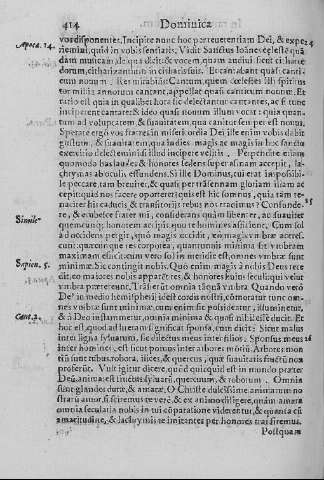 414 Dominica
vos disponentes, Incipite nunc hoc per reuerentiam Dei, & expe 24
Apoca. 14. riemini, quid in vobis sensiatis. Vidit Sanctus Ioannes cælestē quā
dam musicam, de qua dicit: & vocem, quam audiui sicut citharœ
dorum, citharizantium in citharis suis. Et cantabant quasi canti
cum nouum. Res mirabilis: Cantum, quem ecclestes illi spiritus
tot millia annorum cantant, appellat quasi canticum nouum. Et
ratio est quia in qualibet hora sic delectantur cantantes, ac si tunc
inciperent cantare: & ideo quasi nouum illum vocat: quia quan-
tum ad voluptatem & suauitatem, qua cantatur semper est nouus.
Sperate ergo vos fratres in misericordia Dei ille enim vobis dabit
gustum, & suauitatem, qua indies magis ac magis in hoc sancto
exercitio delectemini si illud incipere velitis.
quomodo has laudes & honores sedens super asinam accepit, la-
chrymas ab oculis effundens. Si ille Dominus, cui erat impossibi-
le peccare, tam breuiter, & quasi per transennam gloriam illam ac
cepit: quid nos facere oportet: quousque hic somnus, quia tam te-
naciter his caducis & transitorijs rebus nos tradimus? Confunde- 25
re, & erubesce frater mi, considerans quàm libenter, ac suauiter
Simile quemcunque honorem accipis, quo te homines afficiunt. Cum sol
ad occidens pergit, quò magis occidit, eo magis vmbræ accres
cunt: quæcunque res corporea, quantumuis minima sit vmbram
maximam efficit: cum vero sol in meridie est, omnes vmbræ sunt
Sapien. 5. minimæ. Sic contingit nobis. Quò enim magis à nobis Deus rece
dit, eo maiores nobis apparētes, & honores huius seculi, qui velut
vmbra prætereunt. Trāsierūt omnia tāquā vmbra. Quando verò
De9 in medio hemispherij idest cordis nostri, cōmoratur tunc om-
nes vmbræ sunt minimæ, cum enim sic possidentur, illuminetur,
Cant. 2. & à Deo inflammetur, omnia minima & quasi nihil esse ducit. Et
hoc est, quod ad literam significat sponsa, cum dicit: Sicut malus
inter ligna syluarum, sic dilectus meus inter filios. Sponsus meus 26
inter homines, est sicut pomus inter arbores mōtiū. Arbores mon
tiū sunt rubus, robora, ilices, & quercus, quæ suauitatis fructū non
proferūt. Vult igitur dicere, quod quicquid est in mundo præter
Deū, anima est sicut sylua ruborum, quercuum, & roborum. Omnia
sunt glandes duræ, & amaræ. O Christe dulcissime animarum no
strarū amor, si scirem9 te verè, & ex animo diligere, quàm amara
omnia seculatia nobis in tui cōparatione viderentur, & quanta cū
amaritudine, & lachrymis te imitantes per honores transiremus.
Postquam